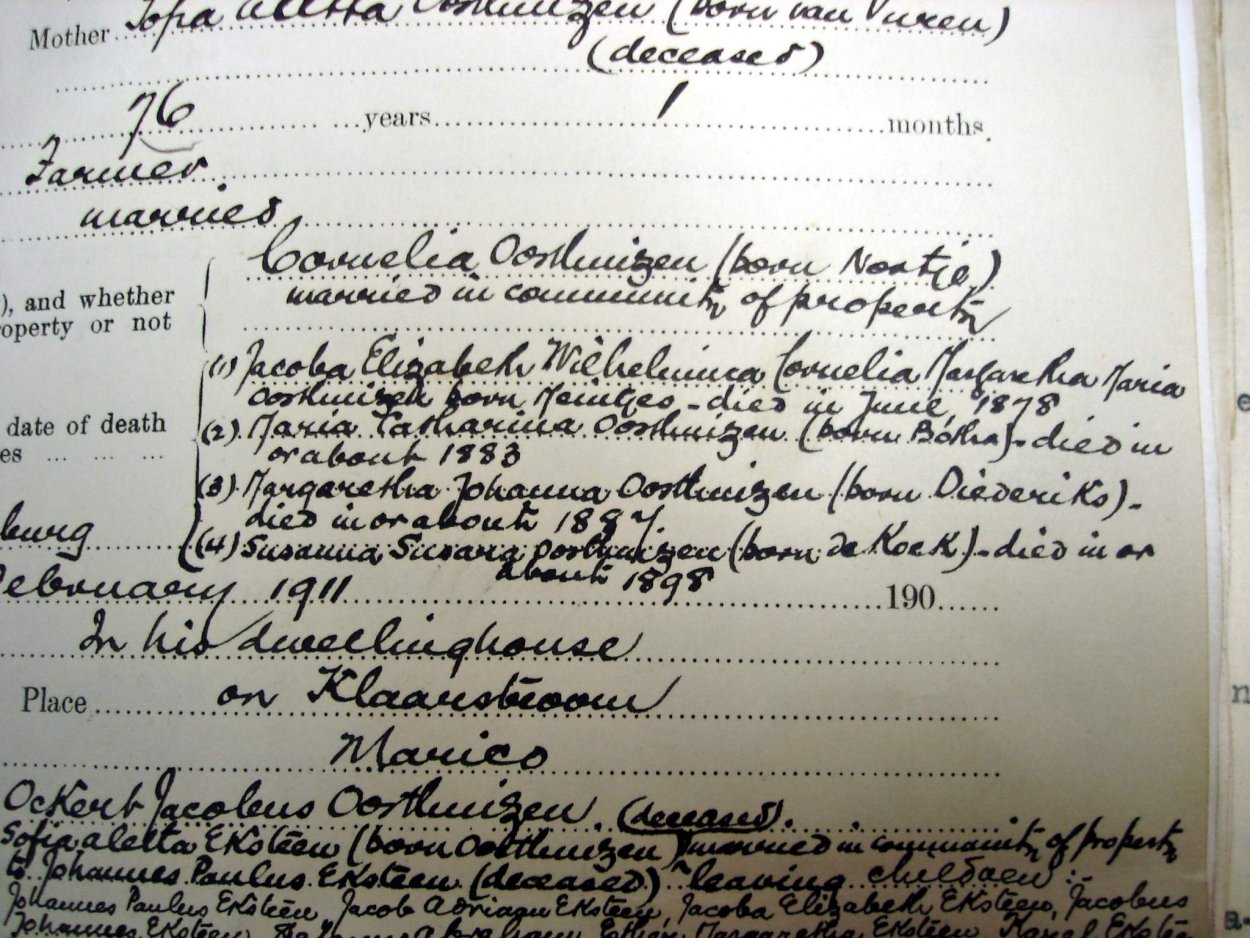 Mother Sofia Aletta Oosthuizen (born van Vuren)
(deceased)
76 years 1 months.
Farmer
married
Cornelia Oosthuizen (born Nortje)
), and whether married in community of property
operty or not
(1) Jacoba Elizabeth Wilhelmina Cornelia Margaretha Maria
Oosthuizen born Meintjes - died in June, 1878
date of death (2) Maria Catharina Oosthuizen (born Botha) - died in
es ... ... ... or about 1883
(3) Margaretha Johanna Oosthuizen (born Diederiks) -
died in or about 1887.
burg (4) Susanna Susara Oosthuizen (born de Kock) - died in or
about 1898
ebruary 1911 190
In his dwellinghouse
Place on Klaarstroom
Marico
Ockert Jacobus Oosthuizen (deceased).
Sofia Aletta Eksteen (born Oosthuizen) married in community of property
to Johannes Paulus Eksteen (deceased) leaving children :-
Johannes Paulus Eksteen, Jacob Adriaan Eksteen, Jacoba Elizabeth Eksteen, Jacobus
Johannes Eksteen, Margaretha Eksteen, Karel Ekstee